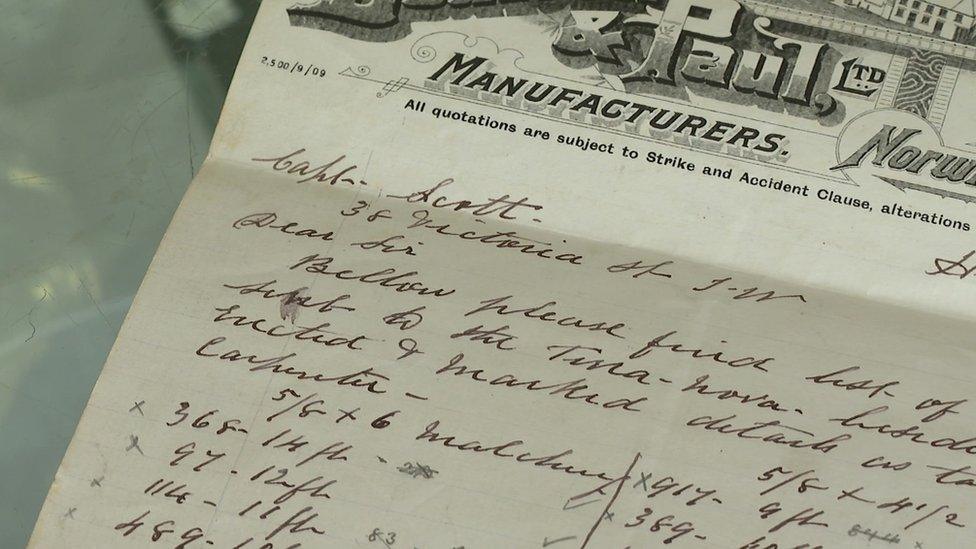 & Paul, LTD
2,500/9/09
MANUFACTURERS.
Norw
All quotations are subject to Strike and Accident Clause, alterations
Capt. Scott.
38 Victoria St S.W
Dear Sir
Bellow please find list of
sent to the Tirra-Nova. besid
Erected & Marked details as to
Carpenter -
5/8 x 6 Matching
368 - 14 ft -
97 - 12 ft
114 - 11 ft
489 -
83
5/8 x 4 1/2
917 - 9 ft
389 -